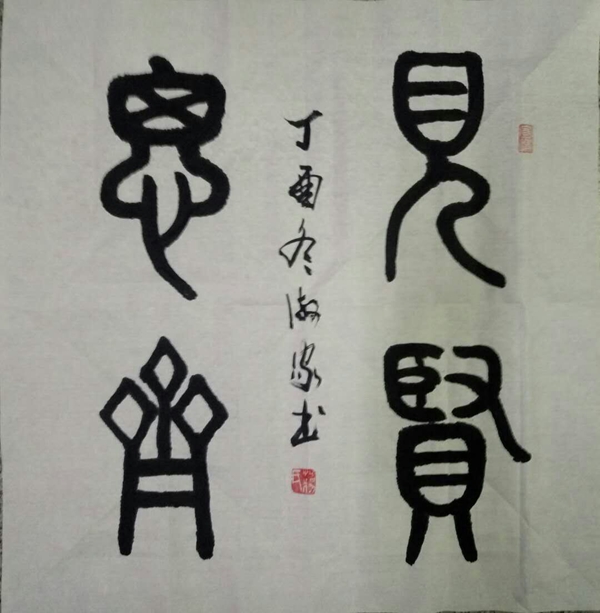 見賢
思齊
丁酉冬淑家书